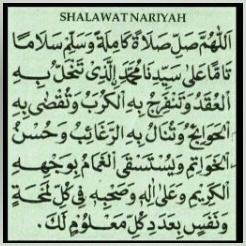 SHALAWAT NARIYAH
اَللّٰهُمَّ صَلِّ صَلَاةً كَامِلَةً وَسَلِّمْ سَلَامًا
تَامًّا عَلَى سَيِّدِنَا مُحَمَّدٍ الَّذِي تَنْحَلُّ بِهِ
الْعُقَدُ وَتَنْفَرِجُ بِهِ الْكُرَبُ وَتُقْضَى بِهِ
الْحَوَائِجُ وَتُنَالُ بِهِ الرَّغَائِبُ وَحُسْنُ
الْخَوَاتِمِ وَيُسْتَسْقَى الْغَمَامُ بِوَجْهِهِ
الْكَرِيمِ وَعَلَى اٰلِهِ وَصَحْبِهِ فِي كُلِّ لَمْحَةٍ
وَنَفَسٍ بِعَدَدِ كُلِّ مَعْلُوْمٍ لَكَ.